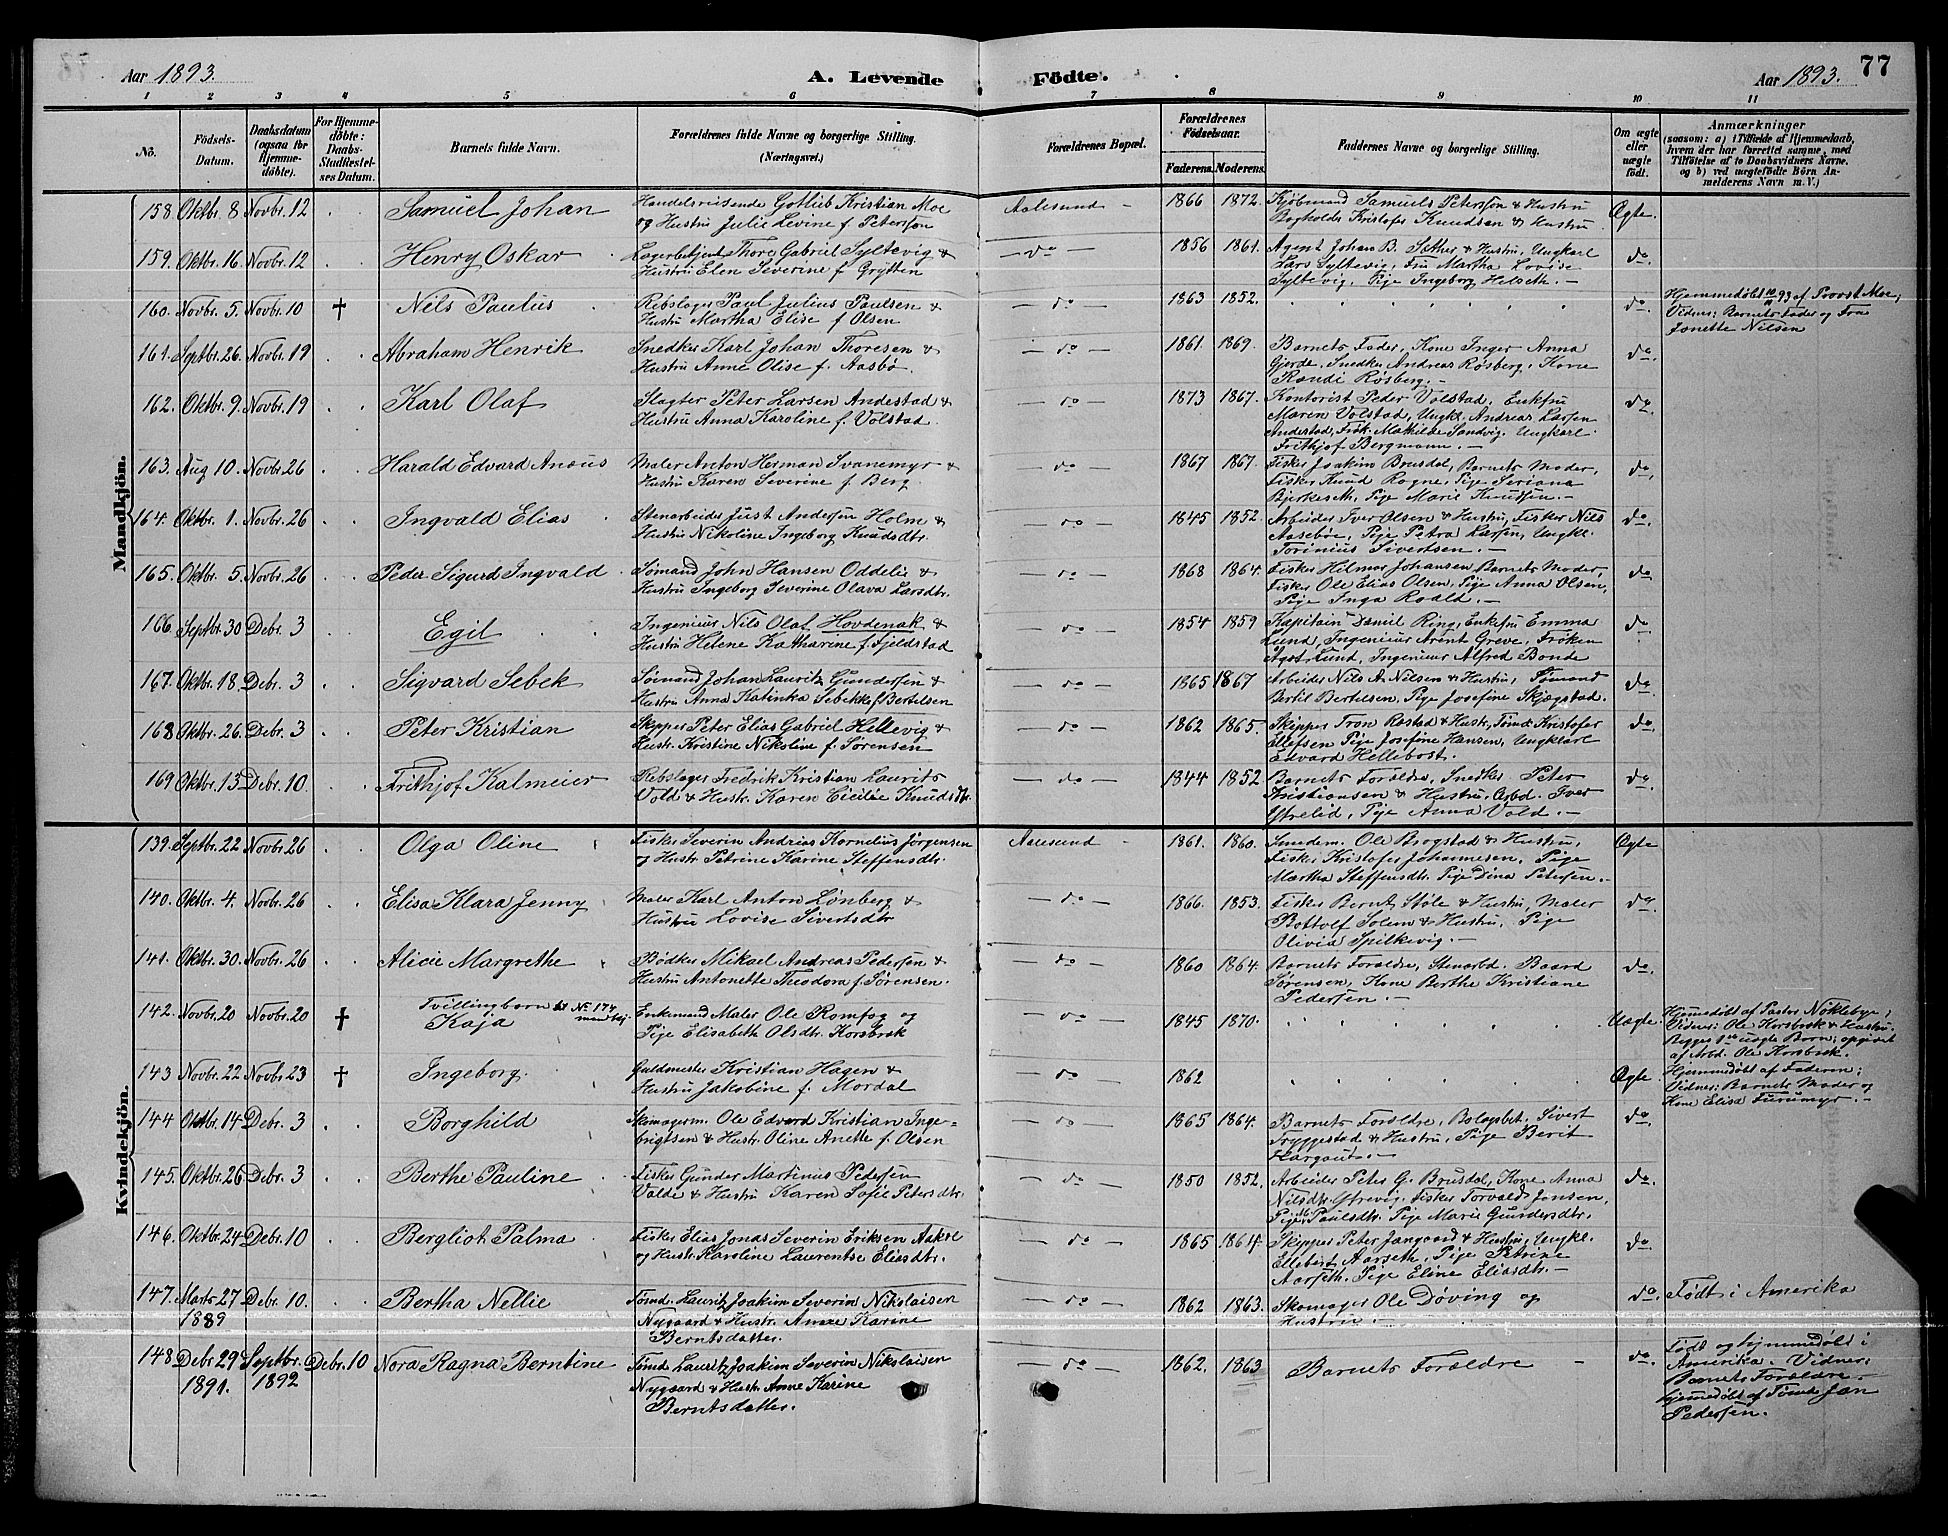 Aar 1893.
A. Levende Födte.
Aar 1893. 77
1 2 3 4 5 6 7 8 9 10 11
No.
Födsels-Datum.
Daabsdatum (ogsaa for Hjemme-döbte).
For Hjemme-döbte: Daabs-Stadfæstelses Datum.
Barnets fulde Navn.
Forældrenes fulde Navne og borgerlige Stilling. (Næringsvei.)
Forældrenes Bopæl.
Forældrenes Födselsaar.
Faderens. Moderens.
Faddernes Navne og borgerlige Stilling.
Om ægte eller uægte födt.
Anmærkninger
(saasom: a) i Tilfælde af Hjemmedaab,
hvem der har forrettet samme, med
Tilföielse af to Daabsvidners Navne.
og b) ved uægtefödte Börn An-
melderens Navn m. V.)
Mandkjön.
158. Oktbr. 8 Novbr. 12 Samuel Johan Handelsreisende Gotlieb Kristian Moe Aalesund 1866 1872. Kjöbmand Samuels Peterssen & Hustru Ægte.
og Hustru Julie Levine f. Peterssen Bogholder Kristofer Knudsen & Hustru
159. Oktbr. 16. Novbr. 12 Henry Oskar Lagerbetjent Thore Gabriel Syltevig & do 1856 1861. Agent Johan B. Sæther & Hustru, Ungkarl do.
Hustru Elen Severine f. Grytten Lars Syltevig, Fru Martha Lovise
Syltevig, Pige Ingeborg Helseth.
160. Novbr. 5. Novbr. 10 † Nils Paulus Rebslager Paul Julius Paulsen & do 1863 1852. do. Hjemmedøbt 10/11 93 af Provst Moe,
Hustru Martha Elise f Olsen Vidner: Barnets Fader og Fru
Janette Nilsen
161. Septbr. 26. Novbr. 19 Abraham Henrik Snedker Karl Johan Thoresen & do 1861. 1869. Barnets Fader, Kone Inger Anna do.
Hustru Anne Olise f. Aasbø. Gjerde, Snedker Andreas Røsberg, Kone
Randi Røsberg.
162. Oktbr. 9. Novbr. 19 Karl Olaf Slagter Peter Larsen Andestad & do 1873 1867. Kontorist Peder Volstad, Enkefru do.
Hustru Anna Karoline f. Volstad. Maren Volstad, Ungk. Andreas Larsen
Andestad, Frøk. Mathilde Sandvig. Ungkarl
Frithjof Bergmann.
163. Aug 10. Novbr. 26 Harald Edvard Anæus Maler Anton Herman Svanemyr & do 1867 1867. Fisker Joakim Brusdal, Barnets Moder, do,
Hustru Karen Severine f Berg. Fisker Knud Rogne, Pige Seriana
Bjerkeseth, Pige Marie Knudsen.
164. Oktbr. 1. Novbr. 26 Ingvald Elias Stenarbeider Just Andersen Holm & do 1845 1852. Arbeider Iver Olsen & Hustru, Fisker Nils do.
Hustru Nikoline Ingeborg Knudsdtr. Aasebøe, Pige Petra Larsen, Ungk.
Torinius Sivertsen.
165. Oktbr. 5. Novbr. 26 Peder Sigurd Ingvald Sömand John Hansen Oddelie & do 1868 1864. Fisker Hilmar Johansen Barnets Moder, do
Hustru Ingeborg Severine Olava Larsdtr. Fisker Ole Elias Olsen, Pige Anna Olsen,
Pige Inga Roald.
166 Septbr. 30 Debr. 3 Egil Ingeniør Nils Olaf Hovdenak & do 1854 1859 Kapitain Daniel Ring, Enkefru Emma do
Hustru Helene Katharine f. Fjeldstad Lund, Ingeniør Arent Greve, Frøken
Agot Lund, Ingeniør Alfred Bonde
167. Oktbr. 18. Debr. 3 Sigvard Sebek Sömand Johan Lauritz Gundersen & do 1865 1867 Arbeider Nils A. Nilsen & Hustru, Sömand do.
Hustru Anna Katinka Sebekke f Bertelsen Bertil Bertelsen, Pige Josefine Skjægstad.
168 Oktbr. 26. Debr. 3 Peter Kristian Skipper Peter Elias Gabriel Hellevig & do 1862 1865. Skipper Tron Rastad & Hustr, Tømd. Kristofer do
Hustr. Kristine Nikoline f. Sørensen Ellefsen Pige Josefine Hansen, Ungkarl
Edvard Hellebost.
169 Oktbr. 13 Debr. 10. Frithjof Kalmeier Rebslager Fredrik Kristian Laurits do 1844 1852 Barnets Foræeldre, Snedker Peter do
Vold & Hustr. Karen Cicilie Knudsdtr. Kristiansen & Hustru, Arbd. Iver
Ytrelid, Pige Anna Vold.
Kvindekjön.
139. Septbr. 22 Novbr. 26 Olga Oline Fisker Severin Andrias Kornelius Jörgensen Aalesund 1861. 1860. Ole Brogstad & Hustru, Ægte
og Hustr Petrine Karine Steffensdtr. Fisker Kristofer Johannesen, Pige
Martha Steffensdtr. Pige Dina Petersen.
140. Oktbr. 4. Novbr. 26 Elisa Klara Jenny Maler Karl Anton Lönberg & do 1866. 1853. Fisker Bernt Støle & Hustru, Maler do.
Hustru Lovise Sivertsdtr Bottolf Solem & Hustru, Pige
Olivia Spilkevig.
141. Oktbr. 30. Novbr. 26 Alice Margrethe Bødker Mikael Andreas Pedersen & do 1860 1864. Barnets Forældre, Stenarbd. Baard do.
Hustru Antonette Theodora f. Sørensen. Sørensen, Kone Berthe Kristiane
Pedersen.
142. Novbr. 20 Novbr. 20 † Tvillingbarn No 174 mandkj. Enkemand Maler Ole Romfog og 1845 1870. Uægte. Hjemmedøbt af Pastor Nøkleby,
Kaja Pige Elisabeth Olsdtr. Korsbrek Vidner: Ole Korsbrek & Hustru.
Begges 1ste uægte Barn; opgivet
af Arbd. Ole Korsbrek.
143 Novbr. 22 Novbr. 23 † Ingeborg Guldmester Kristian Hagen & do 1862 Ægte. Hjemmedøbt af Faderen;
Hustru Jakobine f. Mordal Vidner: Barnets Moder og
Kone Elisa Furumyr.
144 Oktbr. 14 Debr. 3 Borghild Skomagerm. Ole Edvard Kristian Inge- do 1865 1864. Barnets Forældre, Sivert do.
brigtsen & Hustr. Oline Anette f. Olsen Tryggestad & Hustru, Pige Berit
145. Oktbr. 26 Debr. 3 Berthe Pauline Fisker Gunder Martinus Pedersen do 1850 1852. Arbeider Peter G. Brusdal, Kone Anna do.
Valde & Hustru Karen Sofie Petersdtr. Nilsdtr. Ytrevig, Fisker Torvald Jansen,
Pige M. Paulsdtr. Pige Marie Gundersdtr.
146. Oktbr. 24 Debr. 10 Bergliot Palma Fisker Elias Jonas Severin Eriksen Aakre do 1865 1864. Skipper Peter Jangaard & Hustru, Ungk. do
og Hustr. Karoline Laurentse Eliasdtr. Ellebert Aarseth, Pige Petrine
Aarseth, Pige Eline Eliasdtr.
147. Marts 27 Debr. 10. Bertha Nellie Tømd. Lauritz Joakim Severin Nikolaisen do 1862 1863. Skomager Ole Døving og do. Født i Amerika
1889 Nygaard & Hustr. Anne Karine Hustru.
Berntsdatter.
148 Debr. 29 Septbr. Debr. 10 Nora Ragna Berntine Tømd Lauritz Joakim Severin Nikolaisen do 1862. 1863 Barnets Forældre do. Født og hjemmedøbt i
1891. 1892 Nygaard & Hustr. Anne Karine Amerika. Vidner:
Berntsdatter. Barnets Forældre.
hjemmedøbt af Tømd. Jan
Pedersen.